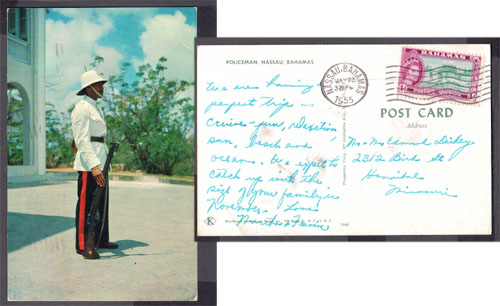 POLICEMAN, NASSAU, BAHAMAS
NASSAU, BAHAMAS
1955
BAHAMAS
POST CARD
Address
We are having a
perfect trip
fun, relaxation
sun, beach and
ocean. We expect to
catch up with the
size of your family in
November. Love
Mr. Mrs. Edward Dickey
2312 Bird St
Hannibal
Missouri
K